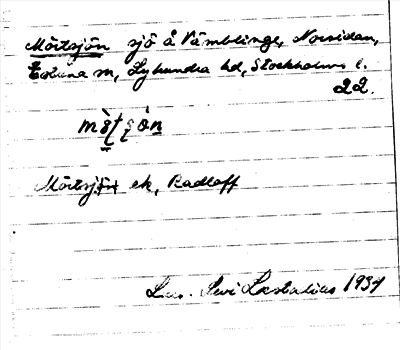 Mörtsjön sjö å Vämblinge, Norsidan,
Estuna sn, Lyhundra hd, Stockholms l.
22.
Mörtsjön ek, Radloff
Lars Levi Læstadius 1934